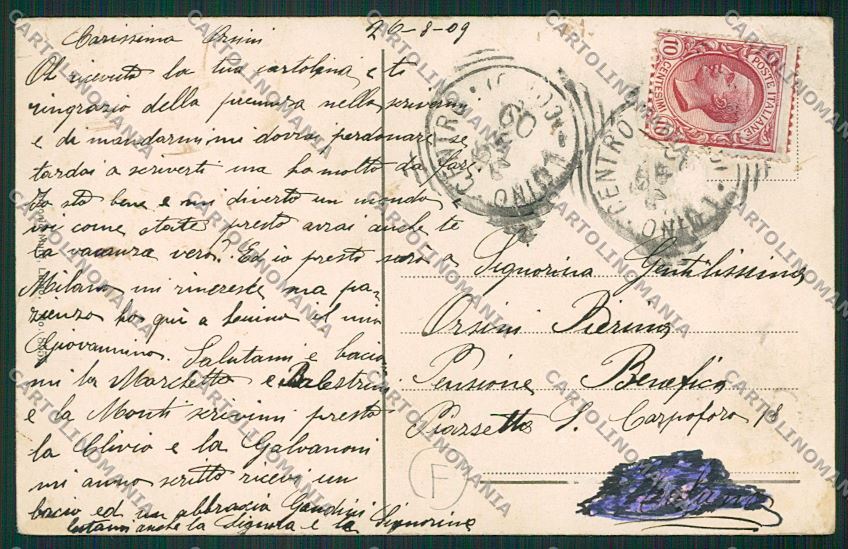 26-8-09
Carissima Orsini
Ho ricevuto la tua cartolina, e te
ringrazio della premura nello scrivermi
e di mandarmi mi dovrai perdonare se
tardai a scriverti ma ho molto da fare
Io sto bene e mi diverto un mondo
voi come state presto avrai anche te
la vacanza vero. Ed io presto sarò a
Milano mi rincresce ma pa-
zienza ho qui a Luino il mio
Giovannino. Salutami e bacia
mi la Marchetta e Balestrini
e la Monti scrivimi presto
la Clivio e la Galvanoni
mi anno scritto ricevi un
bacio ed un abbraccio
lutami anche la e la Signorina
POSTE ITALIANE
10 CENTESIMI 10
LUINO CENTRO
LUINO CENTRO
Signorina Gentilissima
Orsini Pierina
Pensione Benefica
Piazzetta S. Carpoforo 18
F
CARTOLINOMANIA